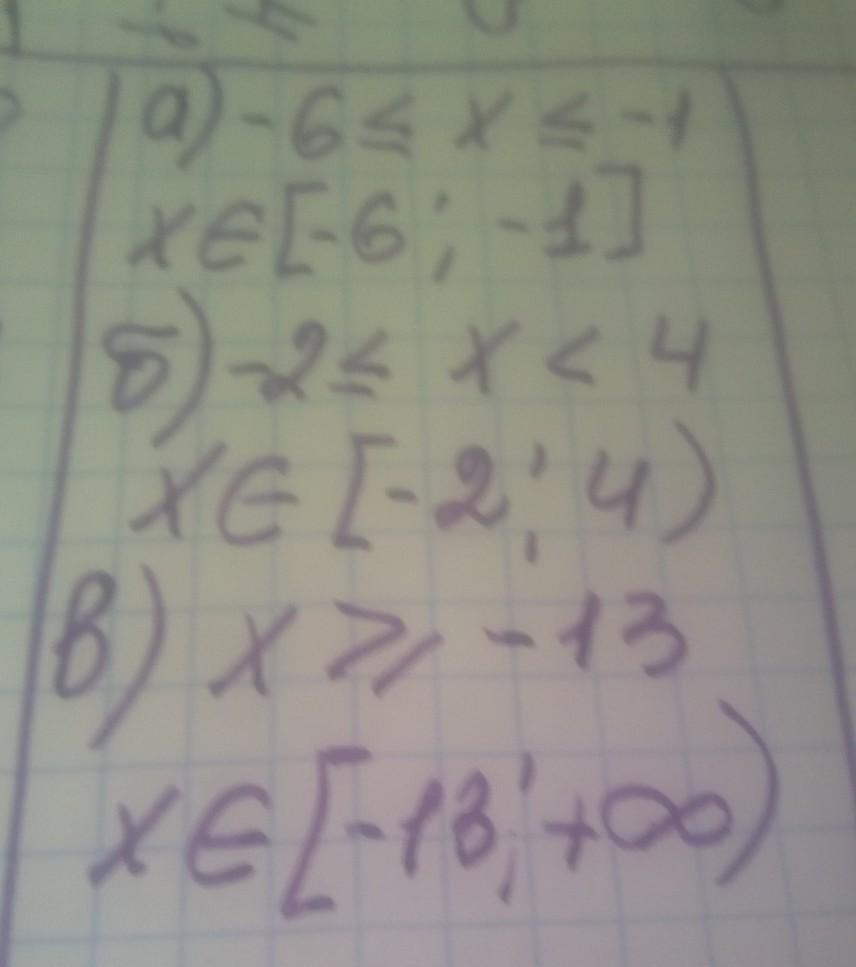 а) -6 ≤ x ≤ -1
x∈[-6; -1]
б) -2 ≤ x < 4
x∈[-2; 4)
в) x ⩾ -13
x∈[-13; +∞)